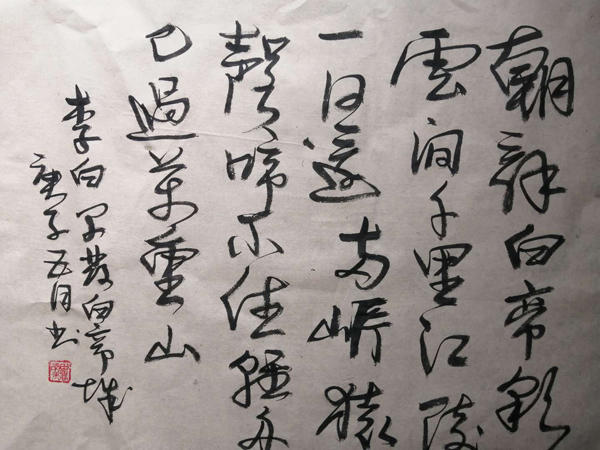 朝辞白帝彩
雲间千里江陵
一日還两岸猿
聲啼不住轻舟
已過萬重山
李白早發白帝城
庚子五月书